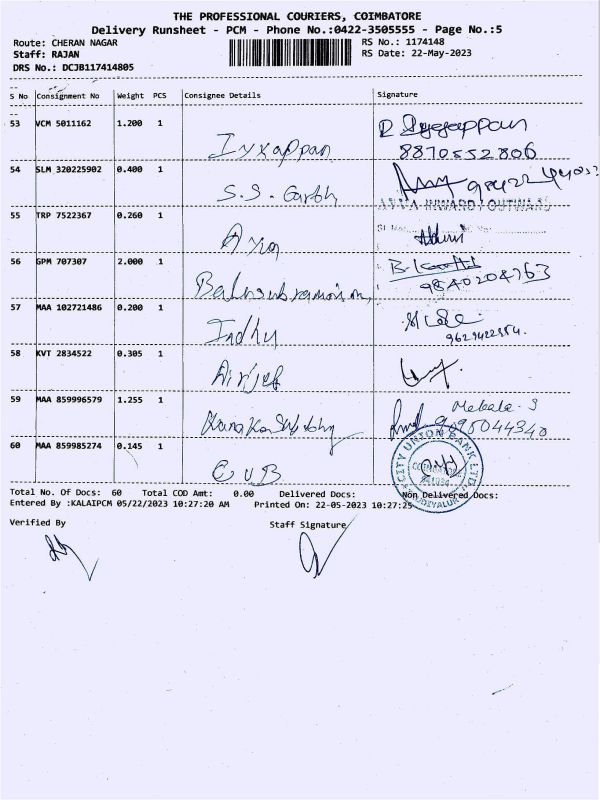 THE PROFESSIONAL COURIERS, COIMBATORE
Delivery Runsheet - PCM - Phone No.:0422-3505555 - Page No.:5
Route: CHERAN NAGAR
RS No.: 1174148
Staff: RAJAN
RS Date: 22-May-2023
DRS No.: DCJB117414805
S No Consignment No Weight PCS Consignee Details Signature
53 VCM 5011162 1.200 1 Iyxappan
8870552806
54 SLM 320225902 0.400 1 S.S.
55 TRP 7522367 0.260 1
56 GPM 707307 2.000 1
9840204763
57 MAA 102721486 0.200 1 Indhu
58 KVT 2834522 0.305 1
59 MAA 859996579 1.255 1 Mebala-S
9095044340
60 MAA 859985274 0.145 1 CUB
CITY UNION BANK LTD
Total No. Of Docs: 60 Total COD Amt: 0.00 Delivered Docs: Non Delivered Docs:
Entered By :KALAIPCM 05/22/2023 10:27:20 AM Printed On: 22-05-2023 10:27:25
Verified By Staff Signature